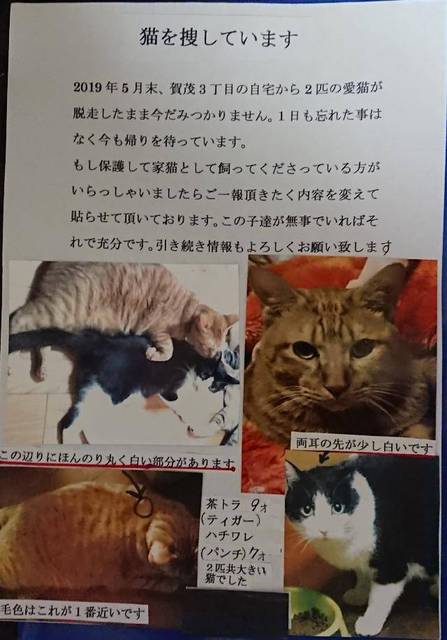 猫を捜しています
2019年5月末、賀茂3丁目の自宅から2匹の愛猫が
脱走したまま今だみつかりません。1日も忘れた事は
なく今も帰りを待っています。
もし保護して家猫として飼ってくださっている方が
いらっしゃいましたらご一報頂きたく内容を変えて
貼らせて頂いております。この子達が無事でいればそ
れで充分です。引き続き情報もよろしくお願い致します
両耳の先が少し白いです
この辺りにほんのり丸く白い部分があります。
茶トラ 9才
(ティガー)
ハチワレ
(パンチ)7才
2匹共大きい
猫でした
毛色はこれが1番近いです